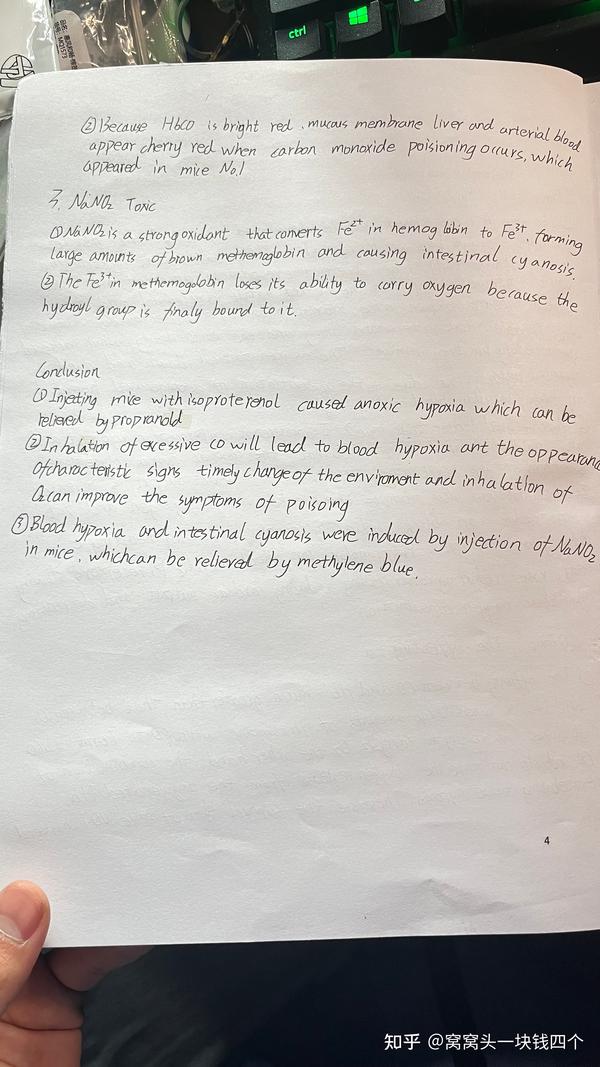 ctrl
② Because Hbco is bright red, mucous membrane liver and arterial blood
appear cherry red when carbon monoxide poisioning occurs, which
appeared in mice No.1
3. NaNO₂ Toxic
① NaNO₂ is a strong oxidant that converts Fe²⁺ in hemoglobin to Fe³⁺, forming
large amounts of brown methemoglobin and causing intestinal cyanosis.
② The Fe³⁺ in methemogolobin loses its ability to carry oxygen because the
hydroyl group is finaly bound to it.
Conclusion
① Injecting mice with isoproterenol caused anoxic hypoxia which can be
relieved by propranold
② Inhalation of excessive co will lead to blood hypoxia ant the oppearanc
of characteristic signs timely change of the enviroment and inhalation of
O₂ can improve the symptoms of poisoing
③ Blood hypoxia and intestinal cyanosis were induced by injection of NaNO₂
in mice, which can be relieved by methylene blue.
4
知乎 @窝窝头一块钱四个